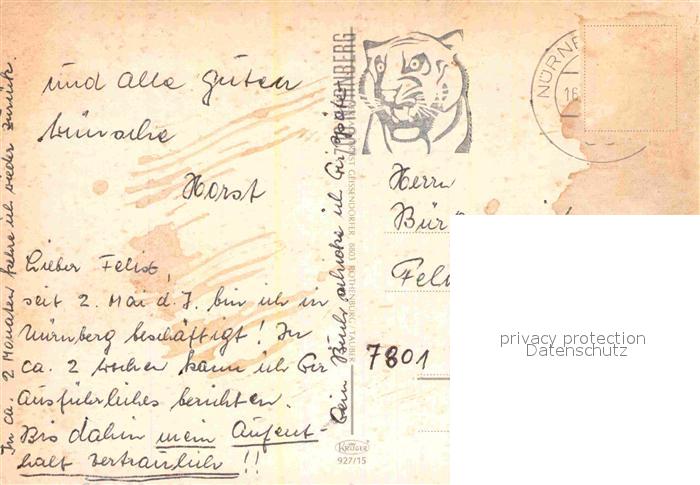 Lieber Felix,
seit 2. Mai d. J. bin ich in
Nürnberg beschäftigt! In
ca. 2 Wochen kann ich Dir
Ausführliches berichten.
Bis dahin mein Aufent-
halt vertraulich!!
und alle guten
Wünsche
Horst
In ca. 2 Monaten kehre ich wieder zurück.
Dein Buch schicke ich Dir später
NÜRNBERG
GEISSENDÖRFER 8803 ROTHENBURG / TAUBER
KRÜGER
927/15
NÜRNB
16.
Herrn
Bür
Feli
7801
privacy protection
Datenschutz